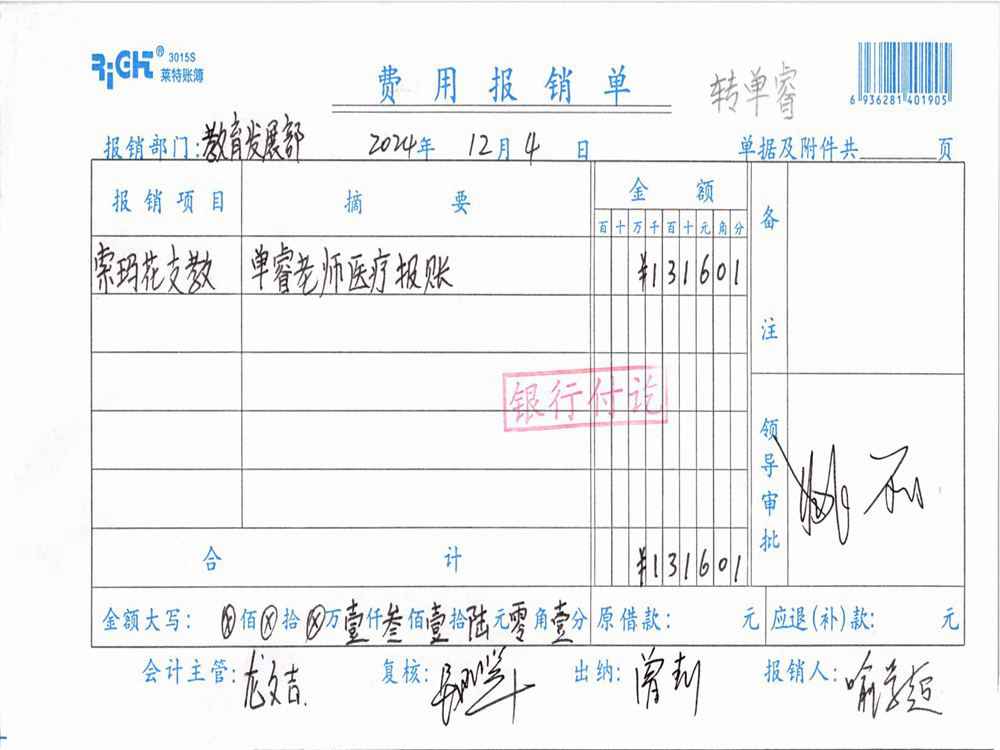 RiCH® 3015S
莱特账簿
费用报销单
转单睿
6 936281 401905
报销部门:教育发展部 2024年 12月4日 单据及附件共 页
报销项目 摘要 金额 备注
百十万千百十元角分
索玛花支教 单睿老师医疗报账 ¥131601
银行付讫
领导审批
合计 ¥131601
金额大写: ⊗佰⊗拾⊗万壹仟叁佰壹拾陆元零角壹分 原借款: 元 应退(补)款: 元
会计主管:龙文吉 复核: 出纳:曾剑 报销人:喻学超